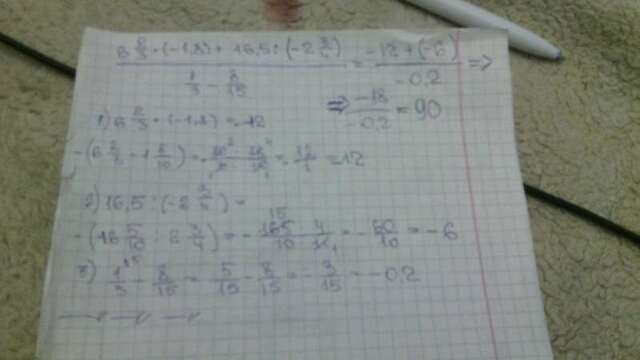 6 2/3 · (-1,8) + 16,5 : (-2 3/4) / 1/3 - 8/15 = -12 + (-6) / -0,2 =>
=> -18 / -0,2 = 90
1) 6 2/3 · (-1,8) = -12
= 12/1 = 12
2) 16,5 : (-2 3/4) =
-(16 5/10 : 2 3/4) = - 165/10 · 4/11 = - 60/10 = -6
3) 1/3 - 8/15 = 5/15 - 8/15 = - 3/15 = -0,2